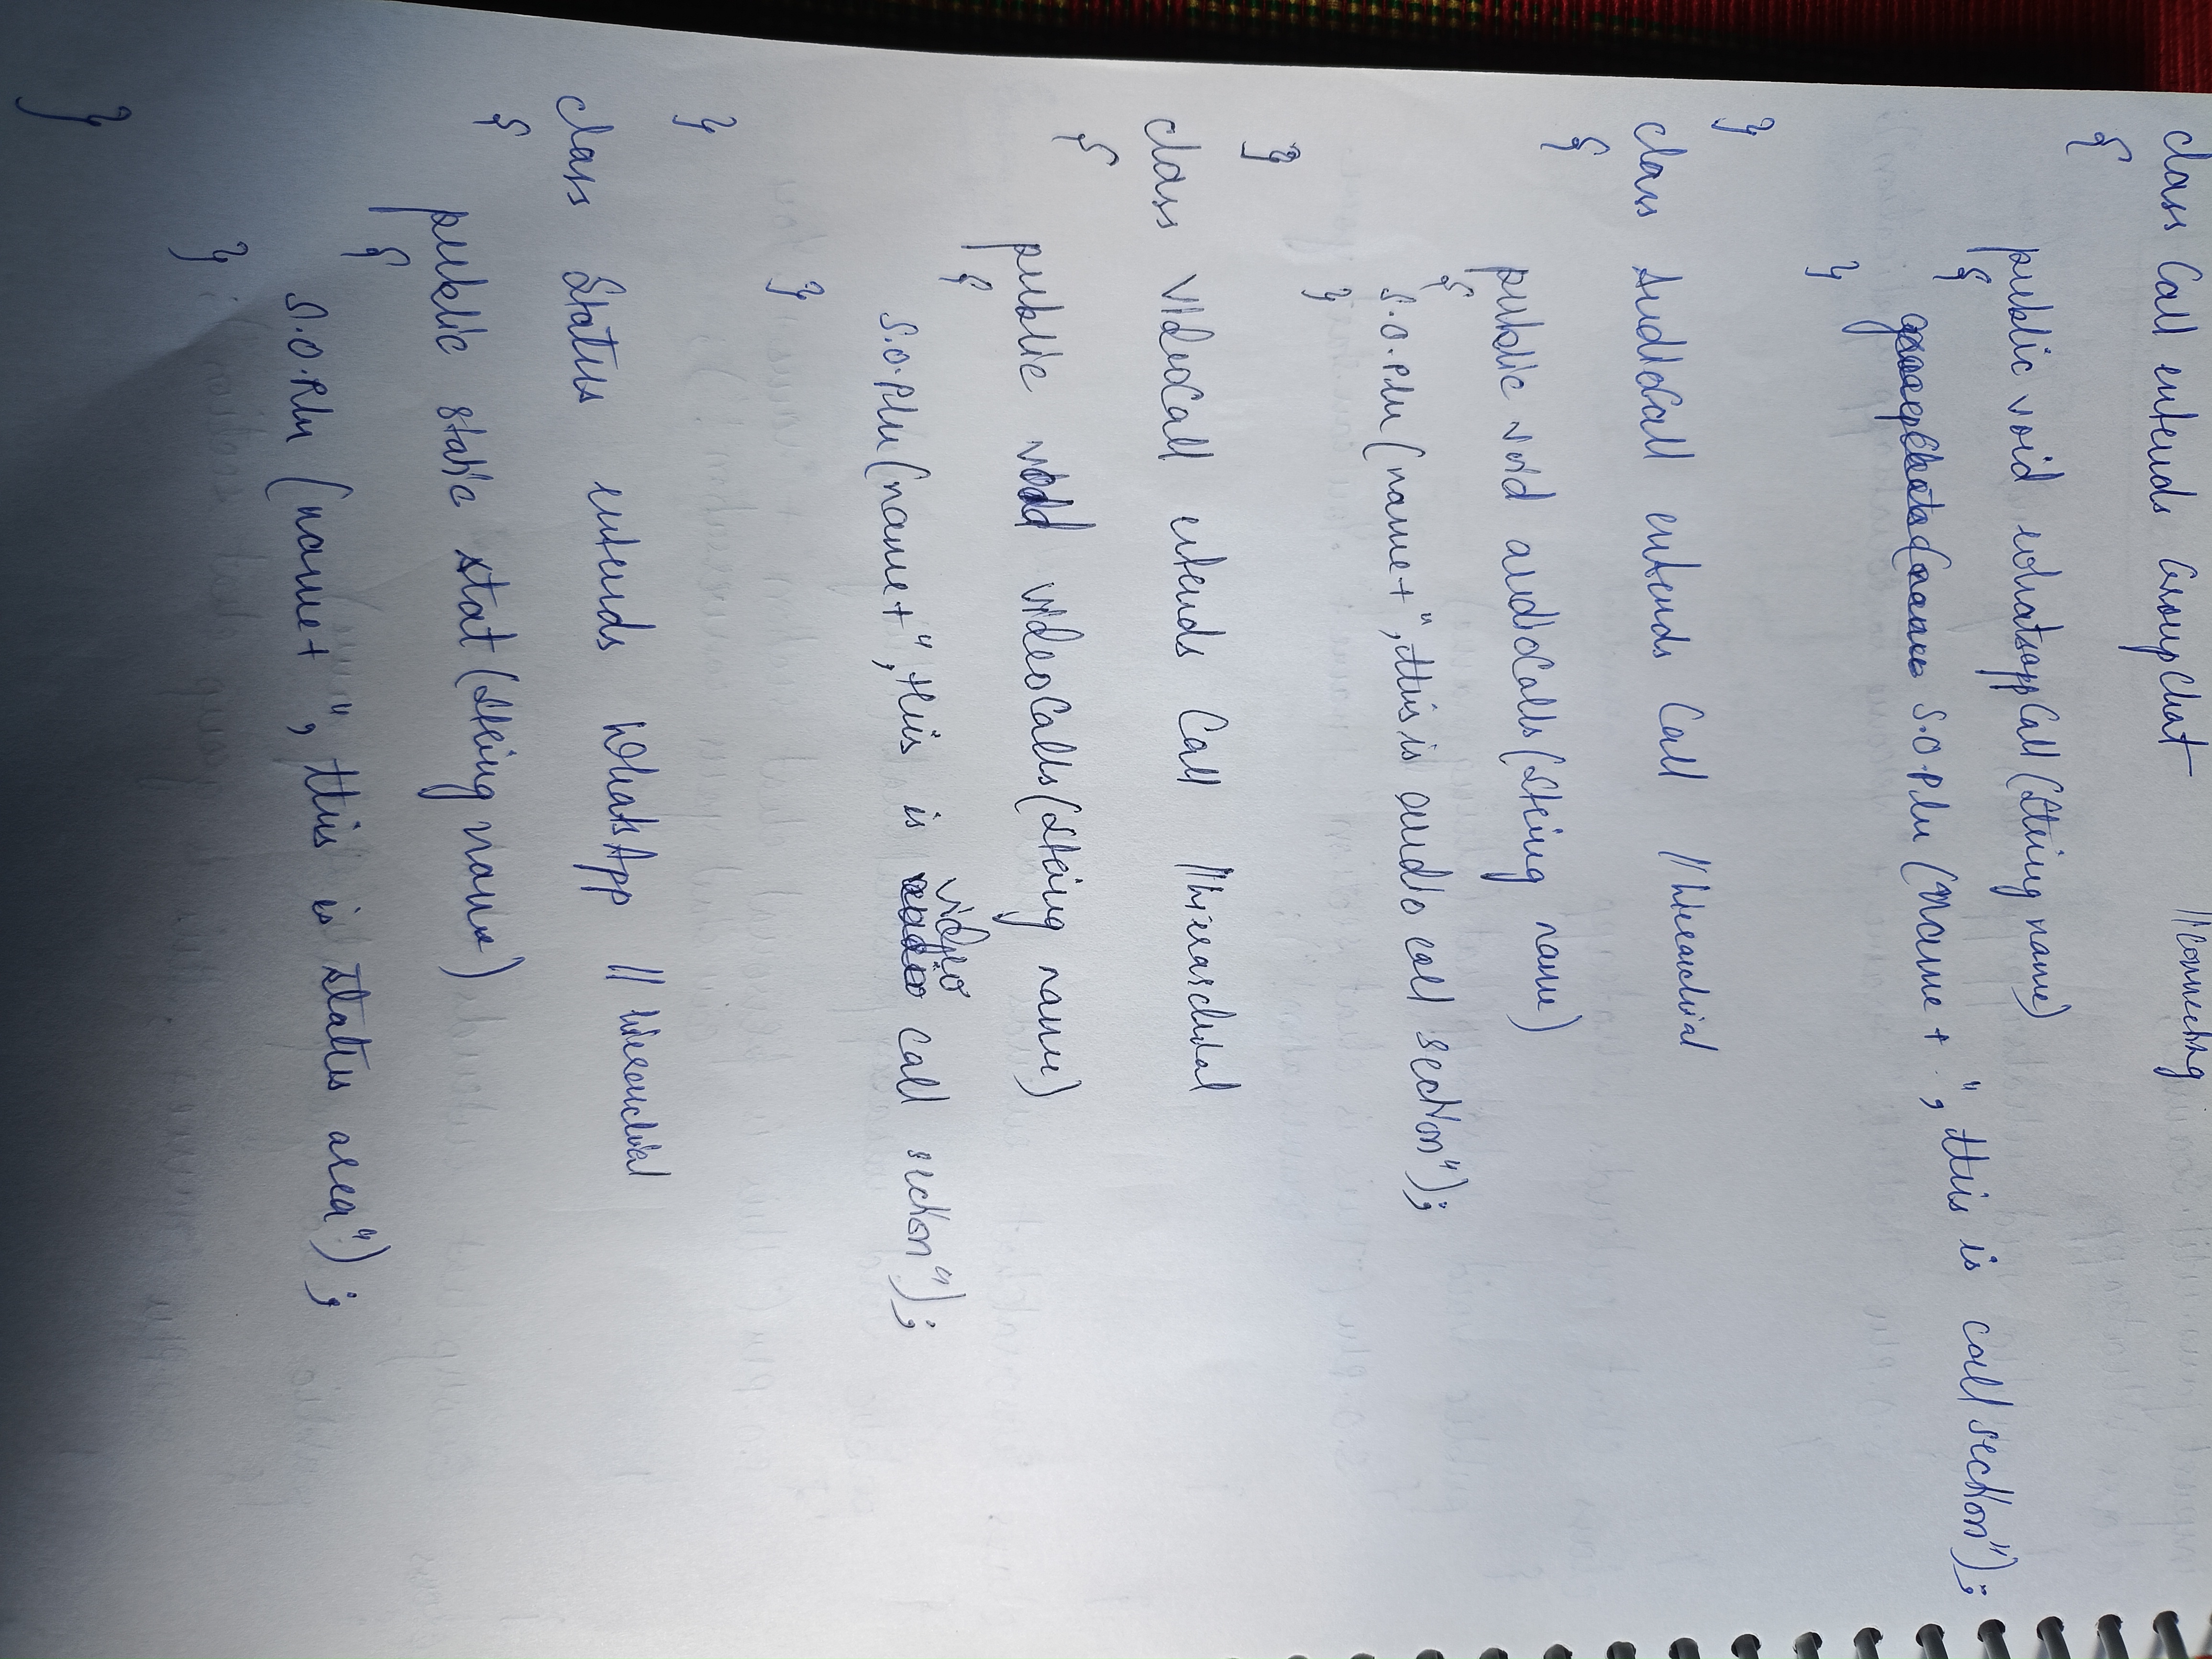 class Call extends Groupchat //connecting
{
public void whatsappCall(String name)
{
S.O.Pln(name+ ", this is call section");
}
}
class AudioCall extends Call //hierarchial
{
public void audioCalls(String name)
{
S.O.Pln(name+ ", this is audio call section");
}
}
class VideoCall extends Call //hierarchial
{
public void videoCalls(String name)
{
S.O.Pln(name+ ", this is video call section");
}
}
class Status extends WhatsApp // hierarchial
{
public static stat(String name)
{
S.O.Pln (name+ ", this is status area");
}
}